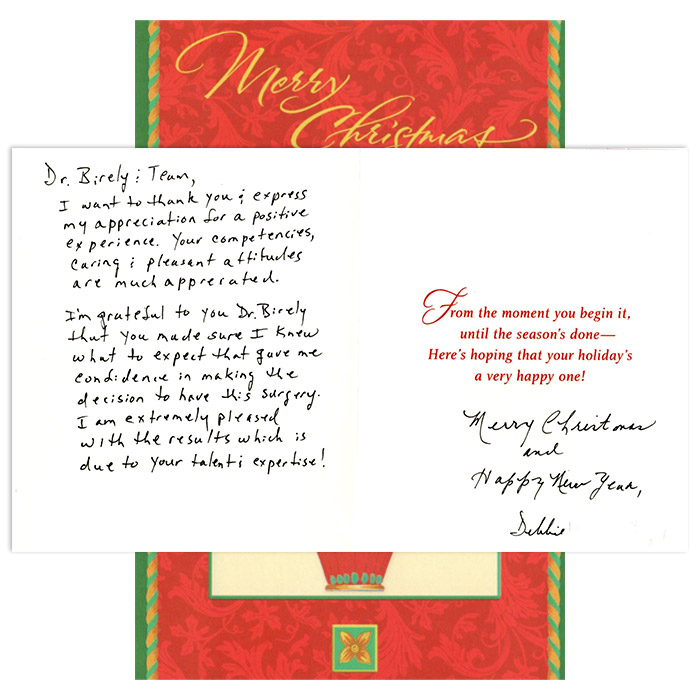 Merry
Christmas
Dr. Birely & Team,
I want to thank you & express
my appreciation for a positive
experience. Your competencies,
caring & pleasant attitudes
are much apprecated.
I'm grateful to you Dr. Birely
that you made sure I knew
what to expect that gave me
confidence in making the
decision to have this surgery.
I am extremely pleased
with the results which is
due to your talent & expertise!
From the moment you begin it,
until the season's done—
Here's hoping that your holiday's
a very happy one!
Merry Christmas
and
Happy New Year,
Debbie